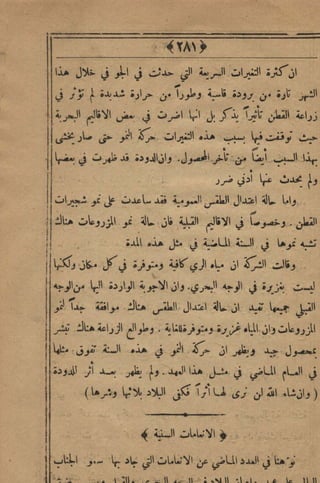 ﴿٢٨١﴾
ان كثرة التغيرات السريعة التي حدثت في الجو في خلال هذا
الشهر تارة من برودة قاسية وطوراً من حرارة شديدة لم تؤثر في
زراعة القطن تأثيراً يذكر بل انها اضرت في بعض الاقاليم البحرية
حيث توقفت فيها بسبب هذه التغيرات حركة النمو حتى صار يخشى
بهذا السبب أيضاً من تأخر المحصول. وان الدودة قد ظهرت في بعضها
ولم يحدث عنها أدنى ضرر
واما حالة اعتدال الطقس العمومية فقد ساعدت على نمو شجيرات
القطن. وخصوصاً في الاقاليم القبلية فان حالة نمو المزروعات هناك
تشبه نموها في السنة الماضية في مثل هذه المدة
وقالت الشركة ان مياه الري كافية ومتوفرة في كل مكان ولكنها
ليست بغزيرة في الوجه البحري. وان الاجوبة الواردة اليها من الوجه
القبلي جميعها تفيد ان حالة اعتدال الطقس هناك موافقة جداً لنمو
المزروعات وان المياه غزيرة ومتوفرة للغاية. وطوالع الزراعة هناك تبشر
بمحصول جيد ويظهر ان حركة النمو في هذه السنة تفوق مثلها
في العام الماضي في مثل هذا العهد. ولم يظهر بعد أثر للدودة
(وان شاء الله لن نرى لها أثراً فكفى البلاد بلائها وشرها)
﴿ الانعامات السنية ﴾
نوهنا في العدد الماضي عن الانعامات التي جاد بها سمو الجناب